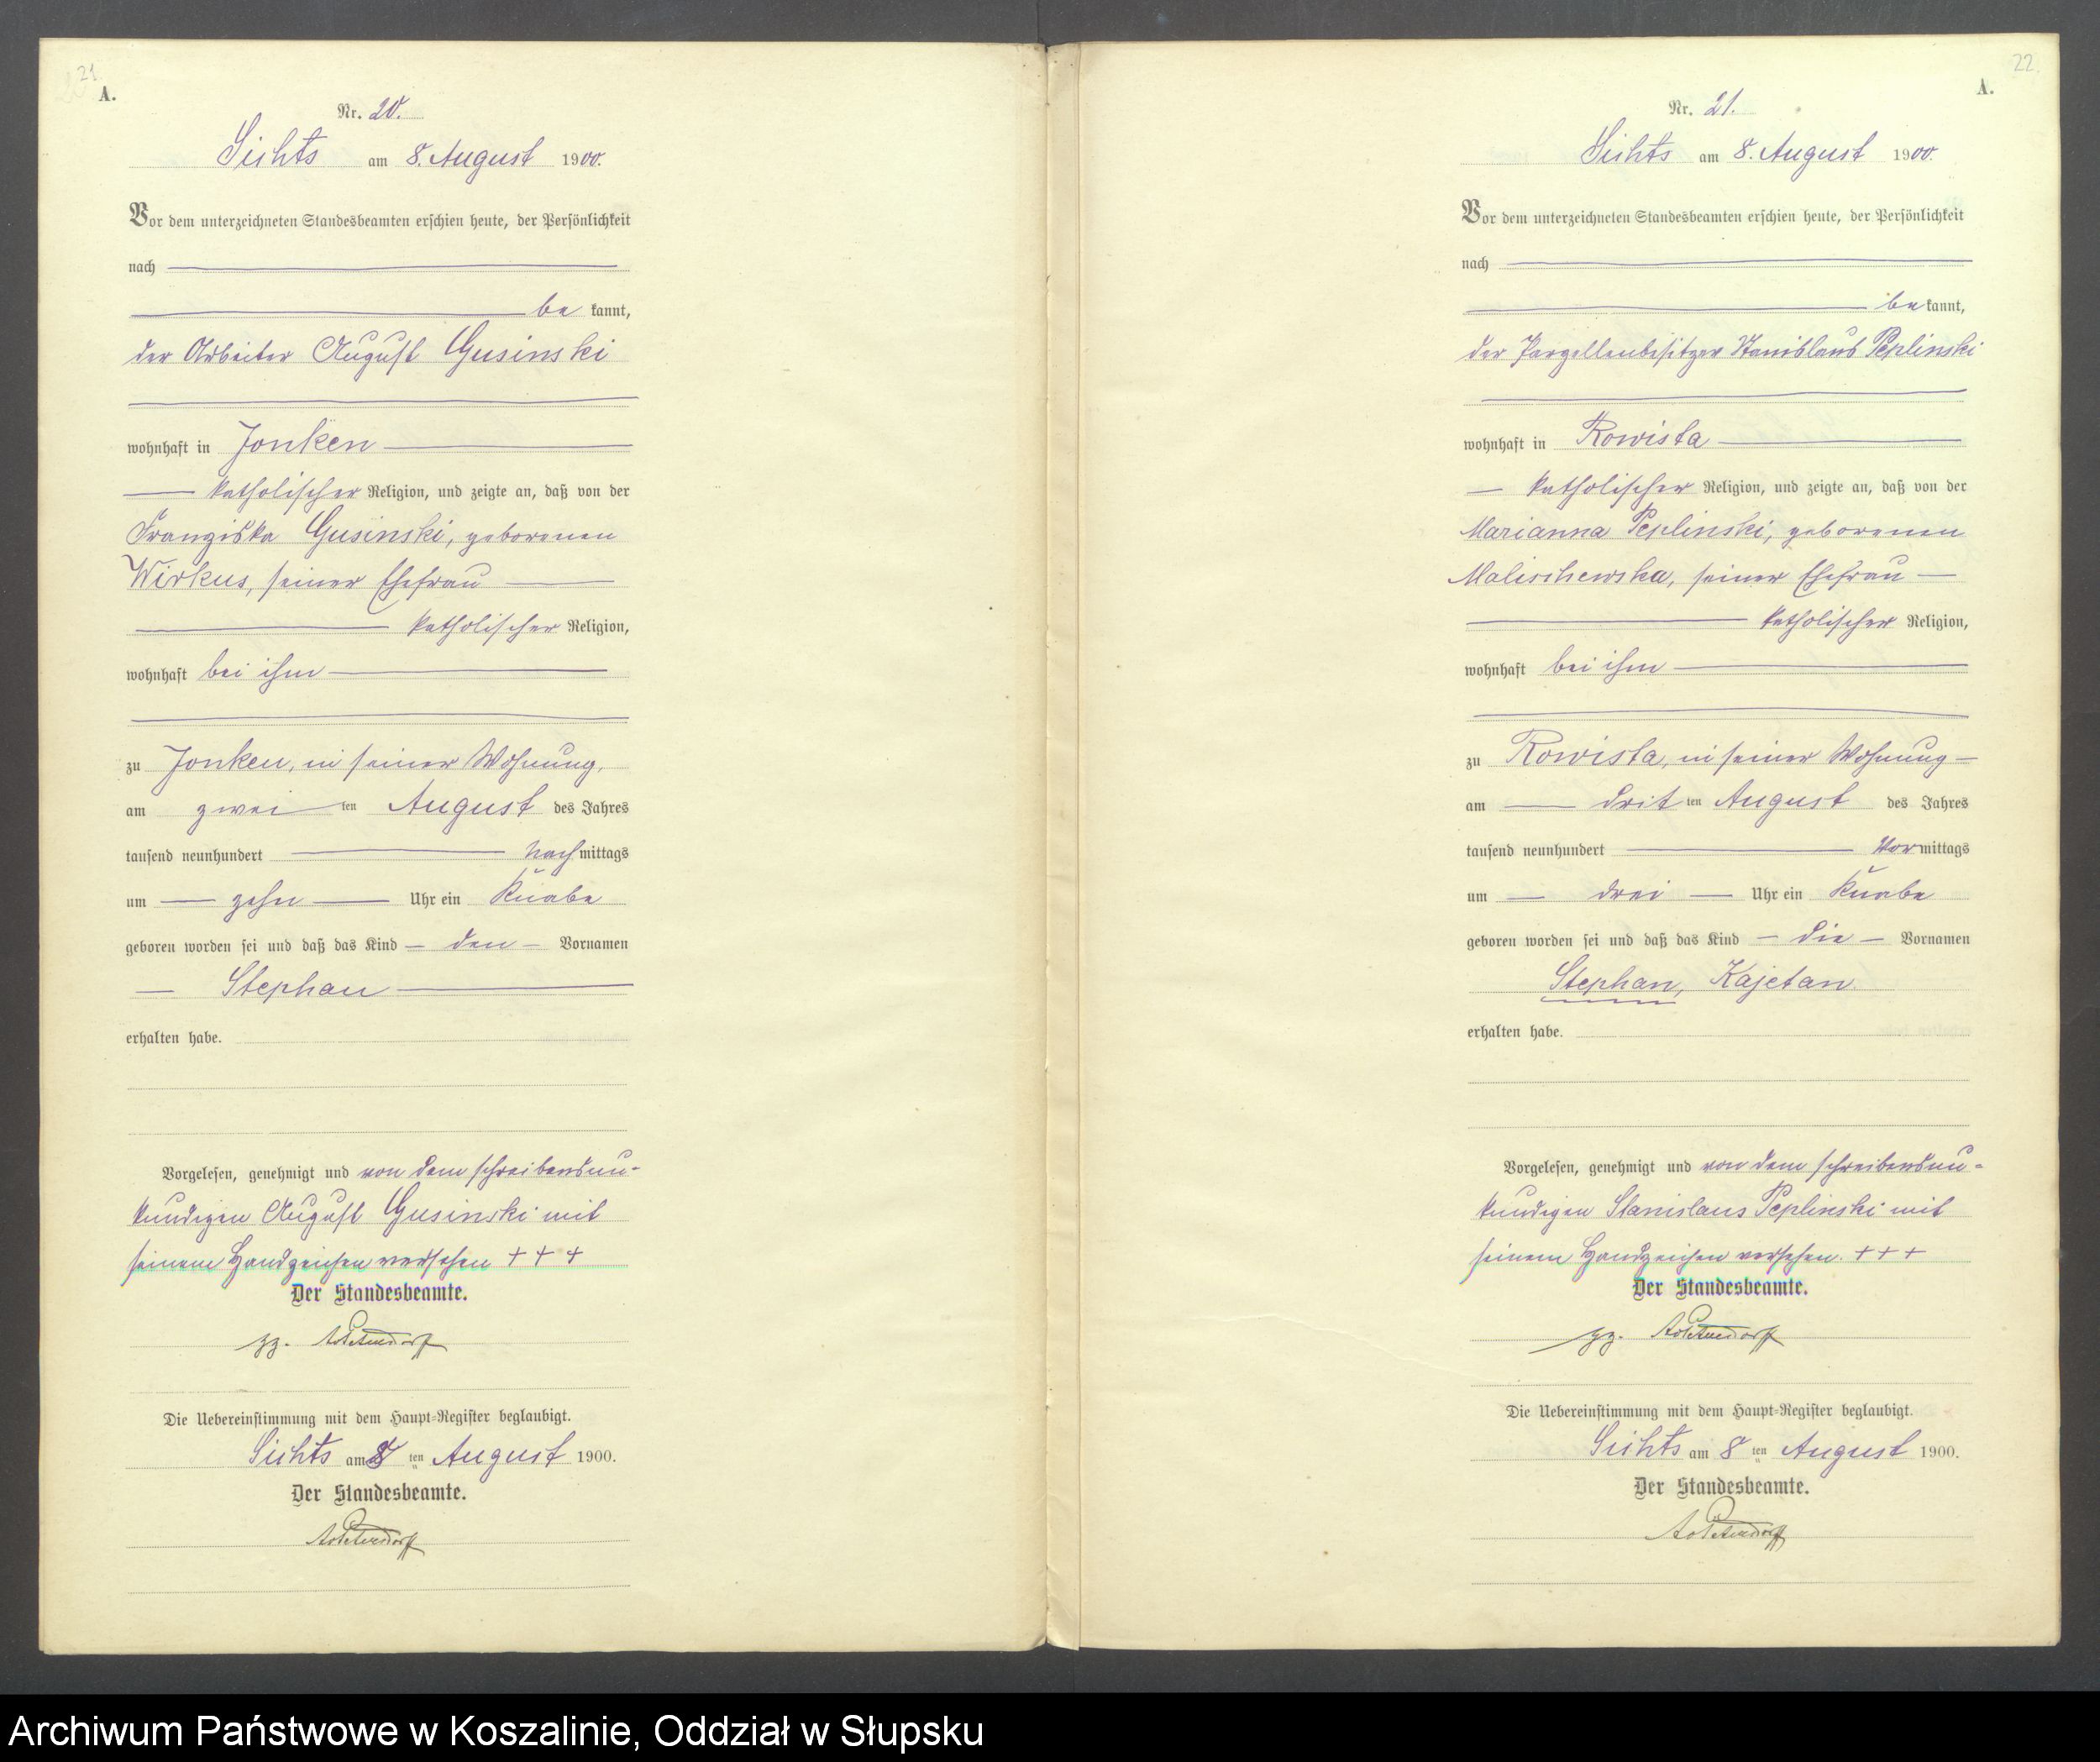 21
A.
Nr. 20.
Sichts am 8. August 1900.
Vor dem unterzeichneten Standesbeamten erschien heute, der Persönlichkeit
nach
be kannt,
der Arbeiter August Gusinski
wohnhaft in Jonken
katholischer Religion, und zeigte an, daß von der
Franziska Gusinski, geborenen
Wirkus, seiner Ehefrau
katholischer Religion,
wohnhaft bei ihm
zu Jonken, in seiner Wohnung,
am zwei ten August des Jahres
tausend neunhundert Nachmittags
um zehn Uhr ein Knabe
geboren worden sei und daß das Kind den Vornamen
Stephan
erhalten habe.
Vorgelesen, genehmigt und von dem schreibensun-
kundigen August Gusinski mit
seinem Handzeichen versehen + + +
Der Standesbeamte.
gz.
Die Uebereinstimmung mit dem Haupt-Register beglaubigt.
Sichts am 8 ten August 1900.
Der Standesbeamte.
22.
A.
Nr. 21.
Sichts am 8. August 1900.
Vor dem unterzeichneten Standesbeamten erschien heute, der Persönlichkeit
nach
be kannt,
der Parzellenbesitzer Stanislaus Peplinski
wohnhaft in Rowista
katholischer Religion, und zeigte an, daß von der
Marianna Peplinski, geborenen
Malischewska, seiner Ehefrau
katholischer Religion,
wohnhaft bei ihm
zu Rowista, in seiner Wohnung
am drit ten August des Jahres
tausend neunhundert Vormittags
um drei Uhr ein Knabe
geboren worden sei und daß das Kind die Vornamen
Stephan, Kajetan.
erhalten habe.
Vorgelesen, genehmigt und von dem schreibensun-
kundigen Stanislaus Peplinski mit
seinem Handzeichen versehen. + + +
Der Standesbeamte.
gz.
Die Uebereinstimmung mit dem Haupt-Register beglaubigt.
Sichts am 8 ten August 1900.
Der Standesbeamte.
Archiwum Państwowe w Koszalinie, Oddział w Słupsku